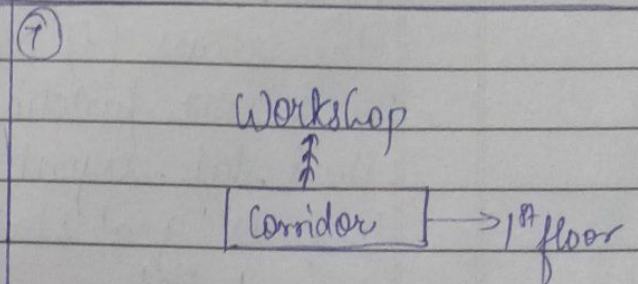 7
Workshop
Corridor
1st floor